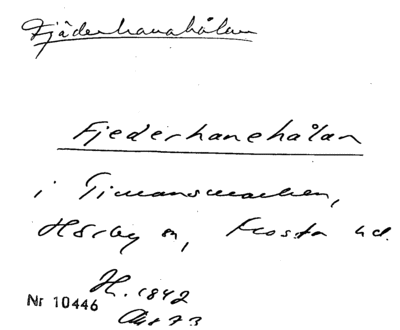 Fjäderhanahålan
Fjederhanehålan
i Timansmarken,
Hörby sn, Frosta hd.
H. 1842
Nr 10446
Akt 73